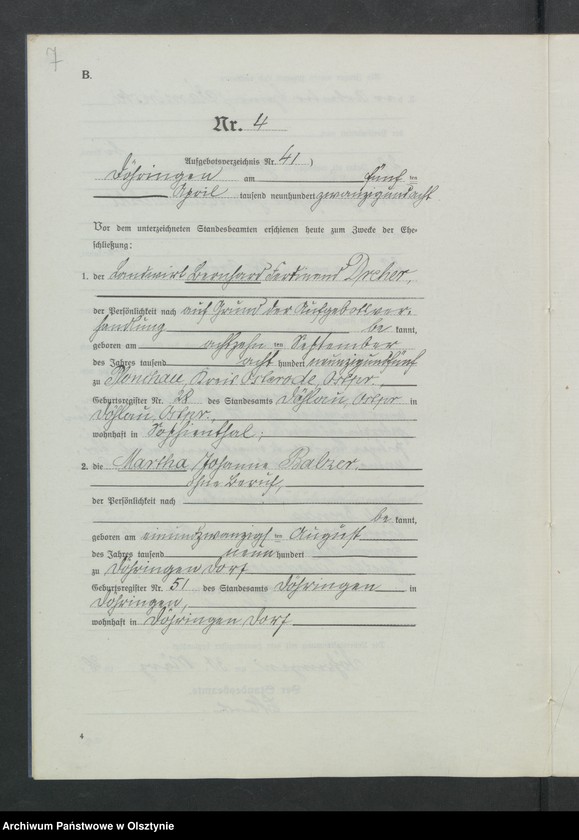 7
B.
Nr. 4
Aufgebotsverzeichnis Nr. 41)
Döhringen am fünften
April tausend neunhundert zwanzigundacht
Vor dem unterzeichneten Standesbeamten erschienen heute zum Zwecke der Ehe-
schließung:
1. der Landwirt Bernhard Ferdinand Dreher,
der Persönlichkeit nach auf Grund der Aufgebotsver-
handlung bekannt,
geboren am achtzehnten September
des Jahres tausend acht hundert neunzigundfünf
zu Kreis Osterode, Ostpr.,
Geburtsregister Nr. 28 des Standesamts Döhlau, Ostpr in
Döhlau, Ostpr.,
wohnhaft in Sophienthal;
2. die Martha Johanne Balzer
ohne Beruf,
der Persönlichkeit nach
bekannt,
geboren am einundzwanzigsten August
des Jahres tausend neun hundert
zu Döhringen Dorf
Geburtsregister Nr. 51 des Standesamts Döhringen in
Döhringen,
wohnhaft in Döhringen Dorf
4
Archiwum Państwowe w Olsztynie